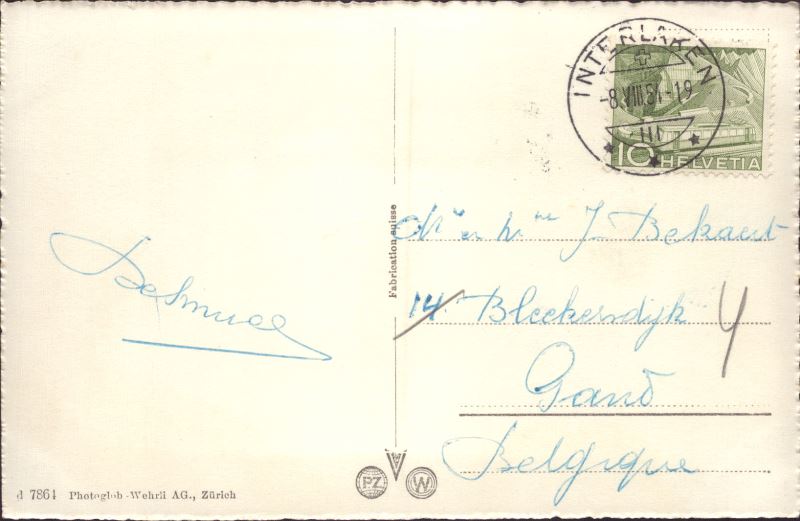 INTERLAKEN
-8.VIII.51.-19
III
10 HELVETIA
Fabrication suisse
Mr en Mme J. Bekaert
14 Bleekersdijk
4
Gand
Belgique
PZ W
d 7864 Photoglob-Wehrli AG., Zürich